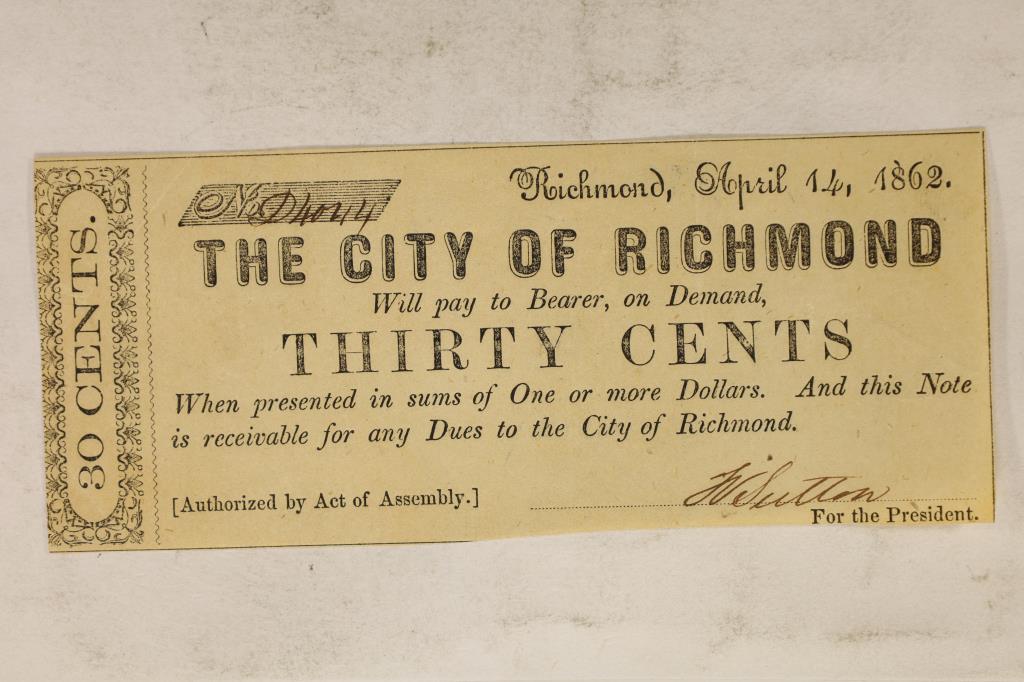 30 CENTS.
Richmond, April 14, 1862.
No
THE CITY OF RICHMOND
Will pay to Bearer, on Demand,
THIRTY CENTS
When presented in sums of One or more Dollars. And this Note
is receivable for any Dues to the City of Richmond.
[Authorized by Act of Assembly.]
Sutton
For the President.